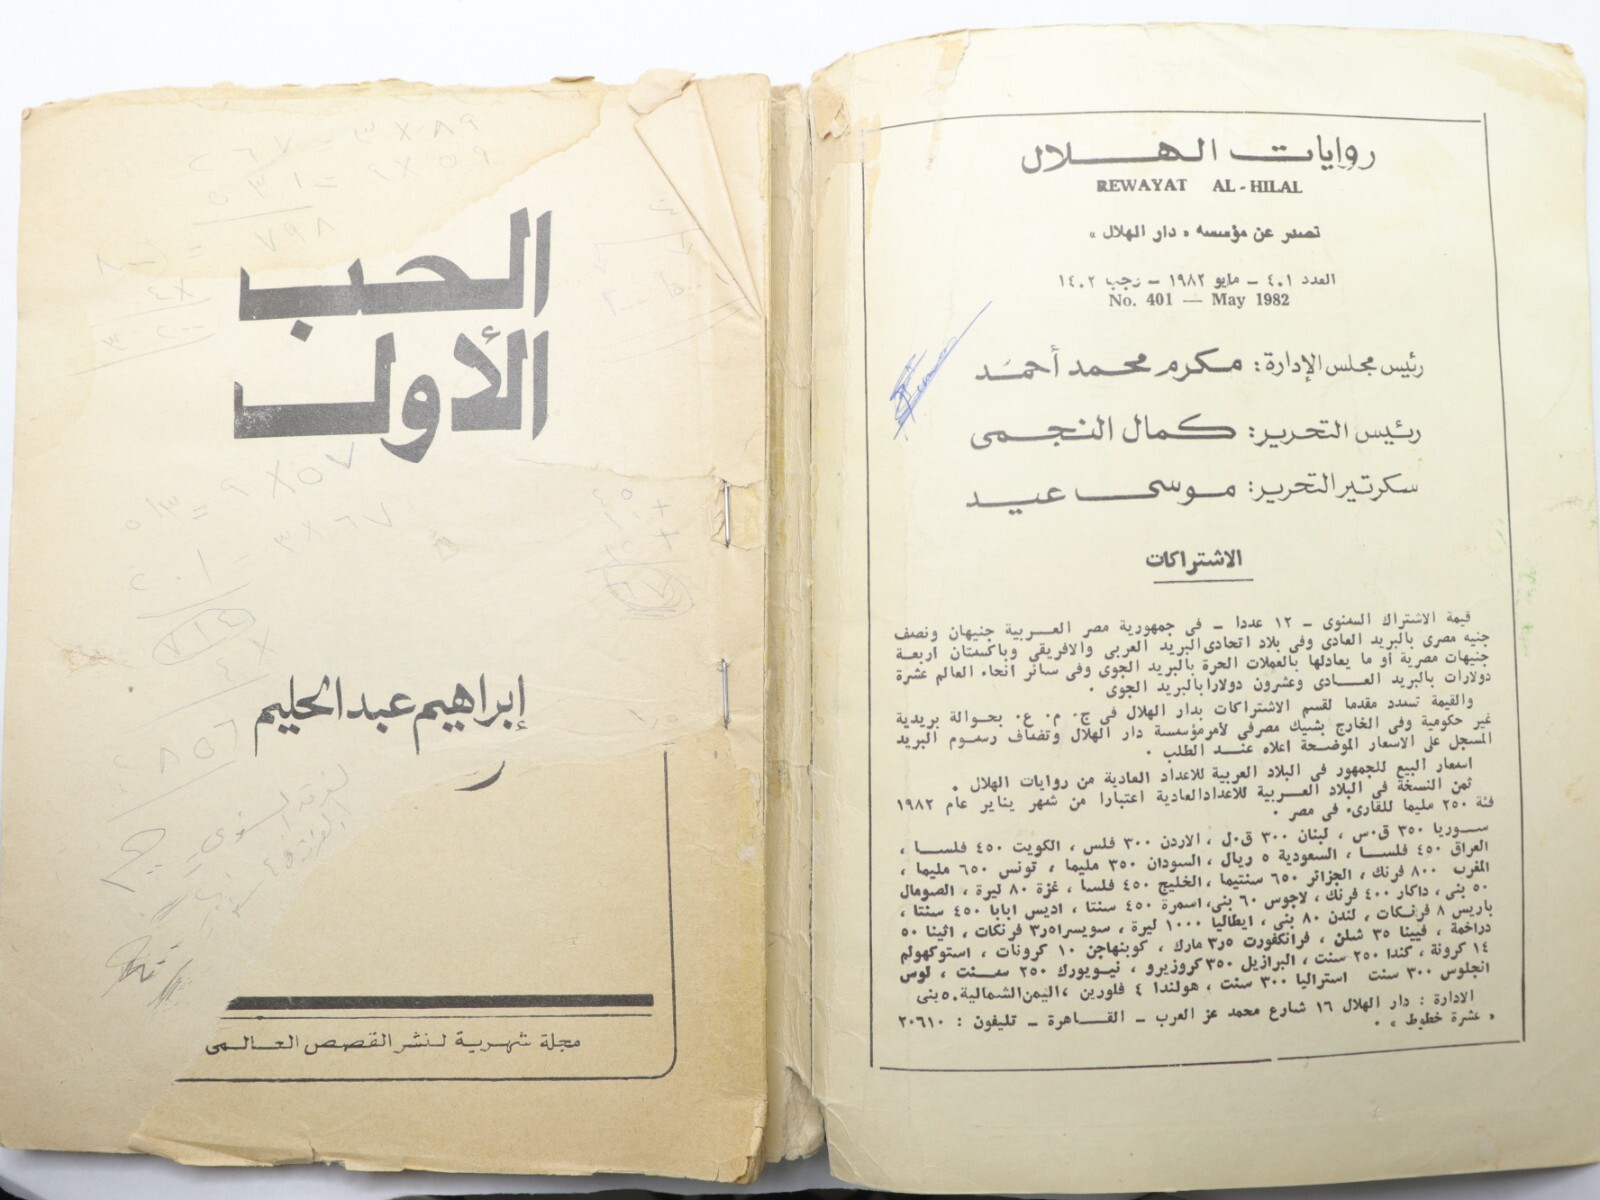 روايات الهلال
REWAYAT AL-HILAL
تصدر عن مؤسسه « دار الهلال »
العدد ٤٠١ - مايو ١٩٨٢ - رجب ١٤٠٢
No. 401 — May 1982
رئيس مجلس الإدارة: مكرم محمد أحمد
رئيس التحرير: كمال النجمى
سكرتير التحرير: موسى عيد
الاشتراكات
قيمة الاشتراك السنوى - ١٢ عددا - فى جمهورية مصر العربية جنيهان ونصف
جنيه مصرى بالبريد العادى وفى بلاد اتحادى البريد العربى والافريقى وباكستان اربعة
جنيهات مصرية أو ما يعادلها بالعملات الحرة بالبريد الجوى وفى سائر انحاء العالم عشرة
دولارات بالبريد العادى وعشرون دولارا بالبريد الجوى .
والقيمة تسدد مقدما لقسم الاشتراكات بدار الهلال فى ج. م. ع. بحوالة بريدية
غير حكومية وفى الخارج بشيك مصرفى لأمر مؤسسة دار الهلال وتضاف رسوم البريد
المسجل على الاسعار الموضحة اعلاه عند الطلب .
اسعار البيع للجمهور فى البلاد العربية للاعداد العادية من روايات الهلال .
ثمن النسخة فى البلاد العربية للاعداد العادية اعتبارا من شهر يناير عام ١٩٨٢
فئة ٢٥٠ مليما للقارىء فى مصر .
سوريا ٣٥٠ ق.س ، لبنان ٣٠٠ ق.ل ، الاردن ٣٠٠ فلس ، الكويت ٤٥٠ فلسا ،
العراق ٤٥٠ فلسا ، السعودية ٥ ريال ، السودان ٣٥٠ مليما ، تونس ٦٥٠ مليما ،
المغرب ٨٠٠ فرنك ، الجزائر ٦٥٠ سنتيما ، الخليج ٤٥٠ فلسا ، غزة ٨٠ ليرة ، الصومال
٥٠ بنى ، داكار ٤٠٠ فرنك ، لاجوس ٦٠ بنى ، اسمرة ٤٥٠ سنتا ، اديس ابابا ٤٥٠ سنتا ،
باريس ٨ فرنكات ، لندن ٨٠ بنى ، ايطاليا ١٠٠٠ ليرة ، سويسرا ٣٫٥ فرنكات ، اثينا ٥٠
دراخمة ، فيينا ٣٥ شلن ، فرانكفورت ٣٫٥ مارك ، كوبنهاجن ١٠ كرونات ، استوكهولم
١٤ كرونة ، كندا ٢٥٠ سنت ، البرازيل ٣٥٠ كروزيرو ، نيويورك ٢٥٠ سنت ، لوس
انجلوس ٣٠٠ سنت استراليا ٣٠٠ سنت ، هولندا ٤ فلورين ، اليمن الشمالية ٥٠ بنى
الادارة : دار الهلال ١٦ شارع محمد عز العرب - القاهرة - تليفون : ٢٠٦١٠
« عشرة خطوط » .
الحب
الأول
إبراهيم عبد الحليم
مجلة شهرية لنشر القصص العالمى
٨٩ × ٣ = ٢٦٧
٥٩ × ٩ = ٥٣١
٧٩٨
٥٧ × ٩ = ٥١٣
٦٧ × ٣ = ٢٠١
٧١٤